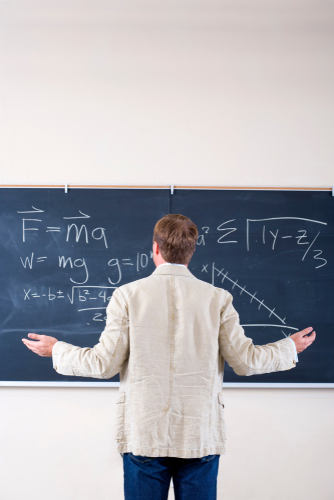 F = ma
w = mg g = 10
x = -b ± √b²-4
2
a² Σ √1y-z/3
x